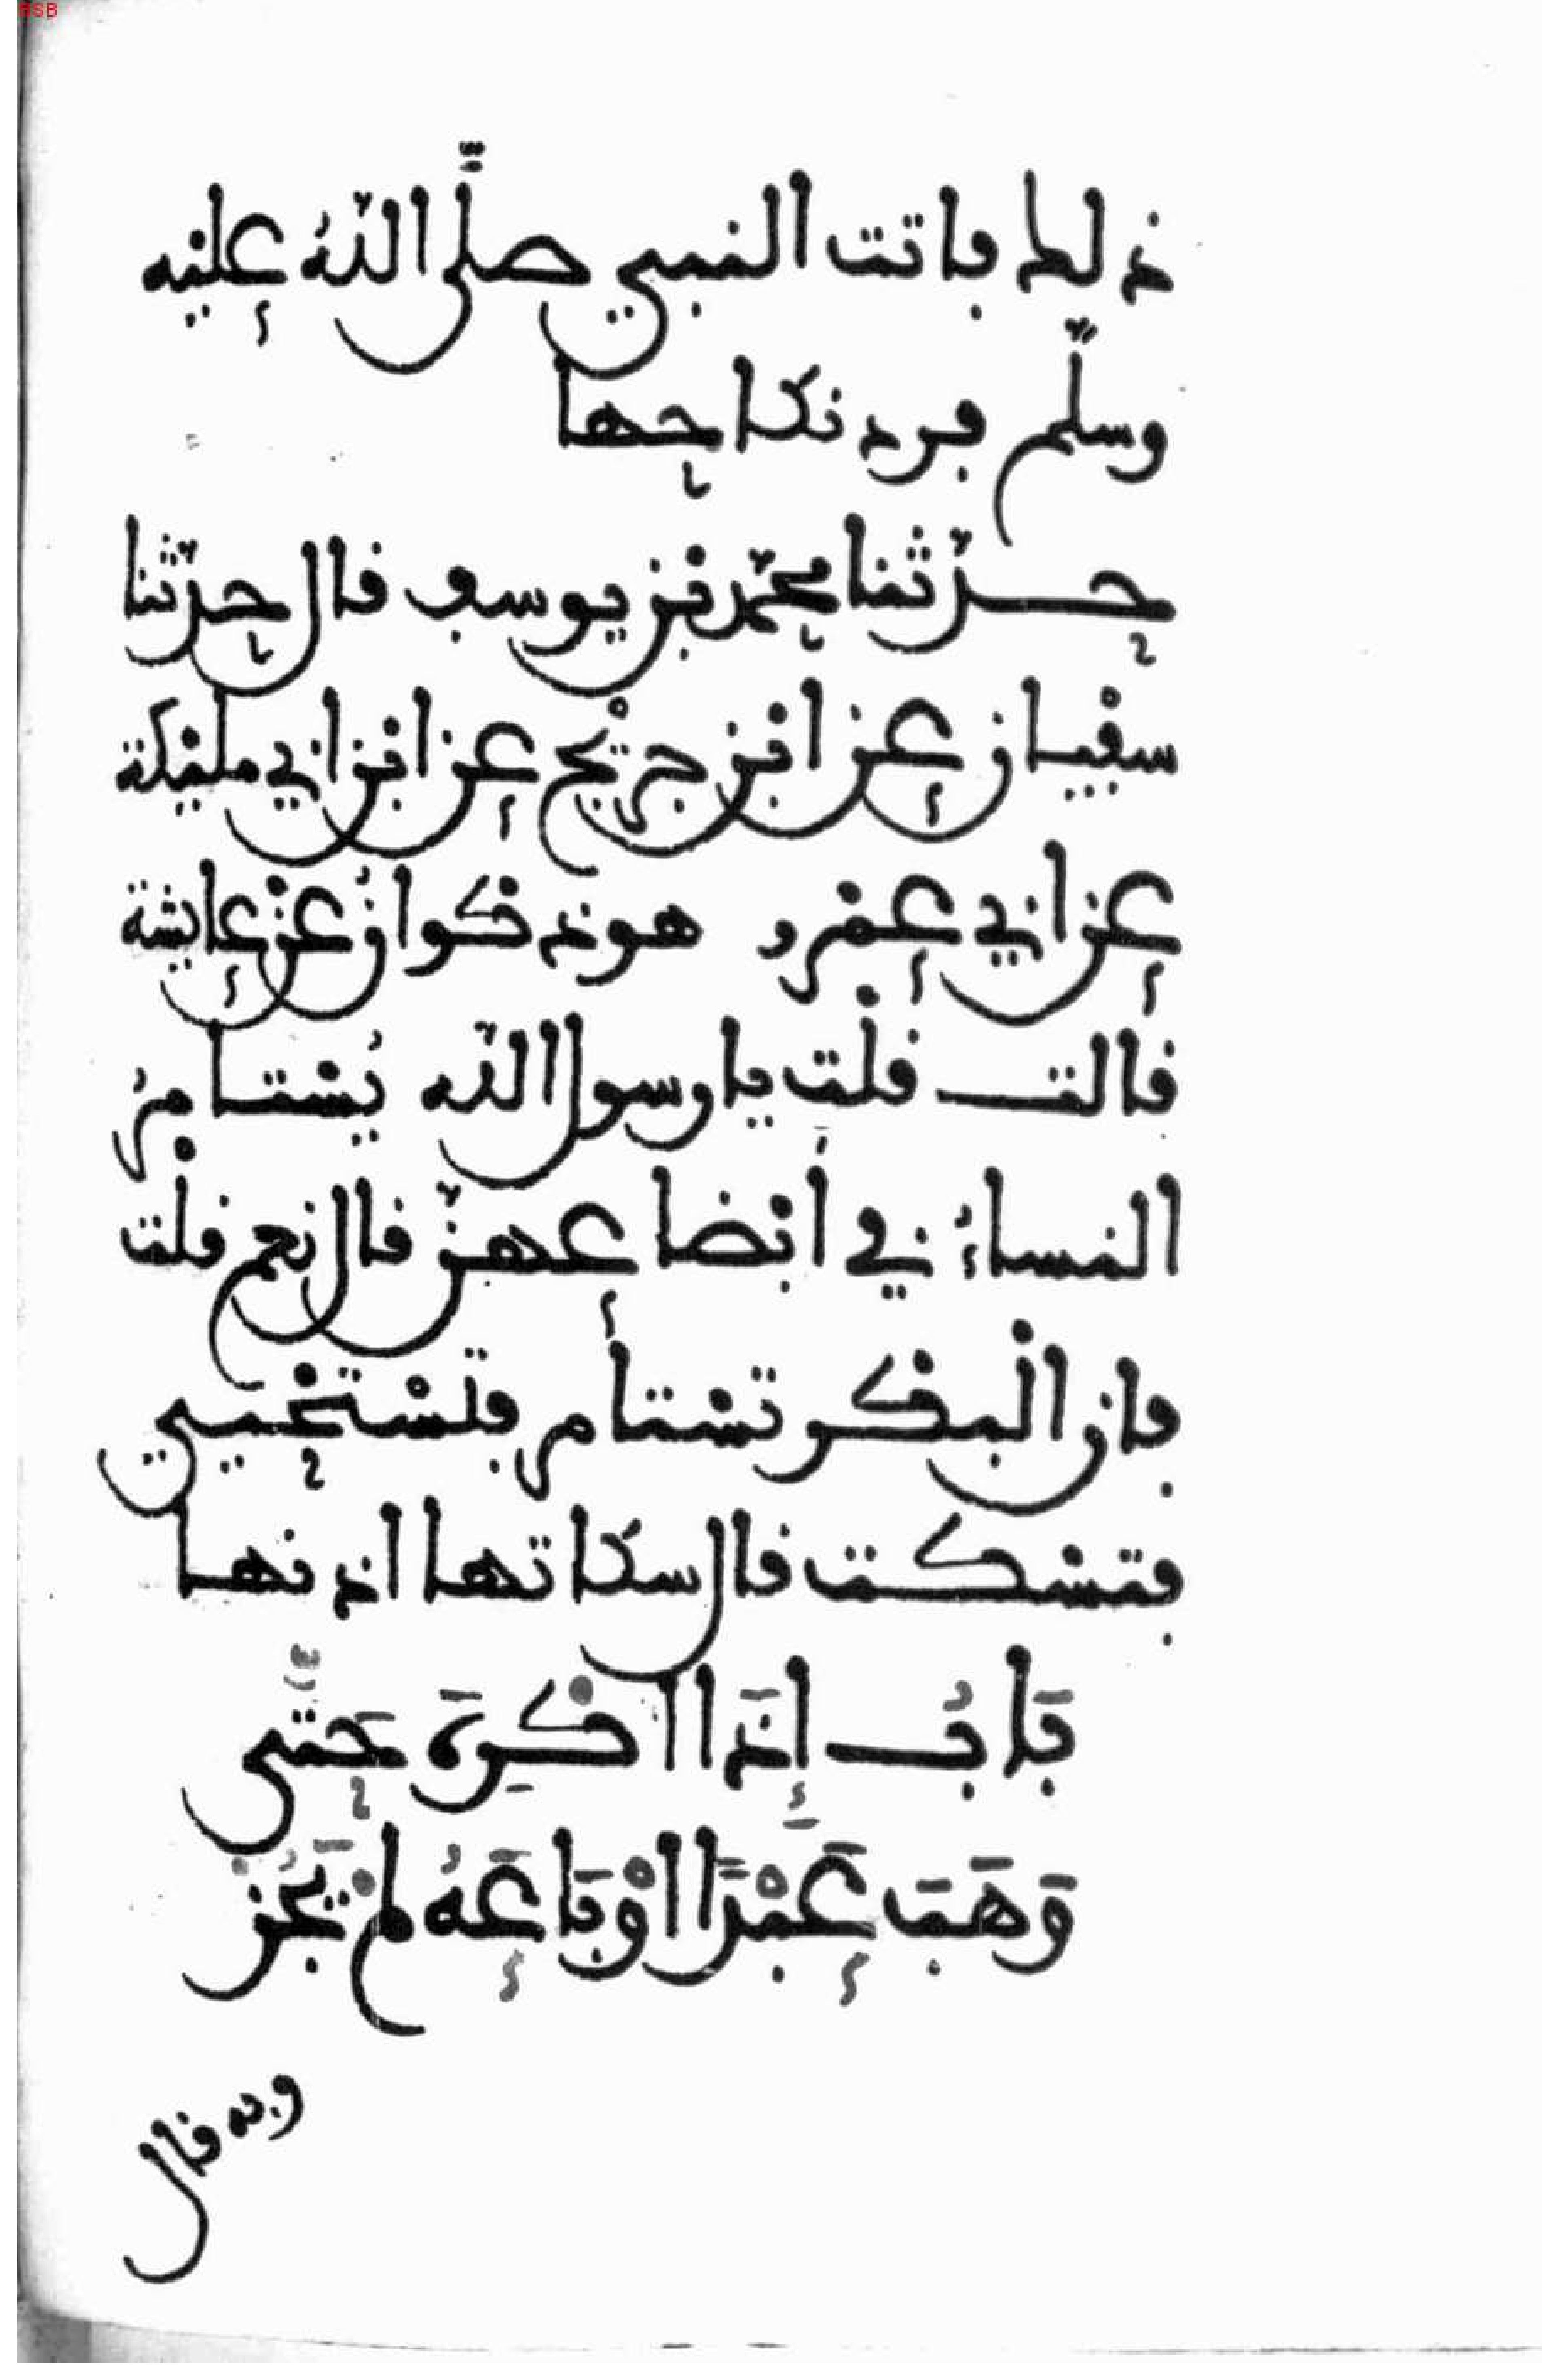 ذلك فاتت النبي صلّى اللّهُ عليه
وسلّم فرد نكاحها
حدّثنا محمّد بن يوسف قال حدّثنا
سفْيان عن ابن جريْج عن ابن ابي مليْكة
عن ابي عمْرو هو ذكْوانُ عنْ عايشة
قالت قلْت يا رسول اللّه يُسْتامرُ
النساءُ في أبْضاعهنّ قال نعم قلْت
فان الْبكْر تسْتأمر فتسْتحْيي
فتسْكت قال سكاتها اذنها
بَابُ إِذَا اكْرِهَ حَتَّى
وَهَبَ عَبْدًا اوْ بَاعَهُ لمْ يَجُزْ
وبه قال